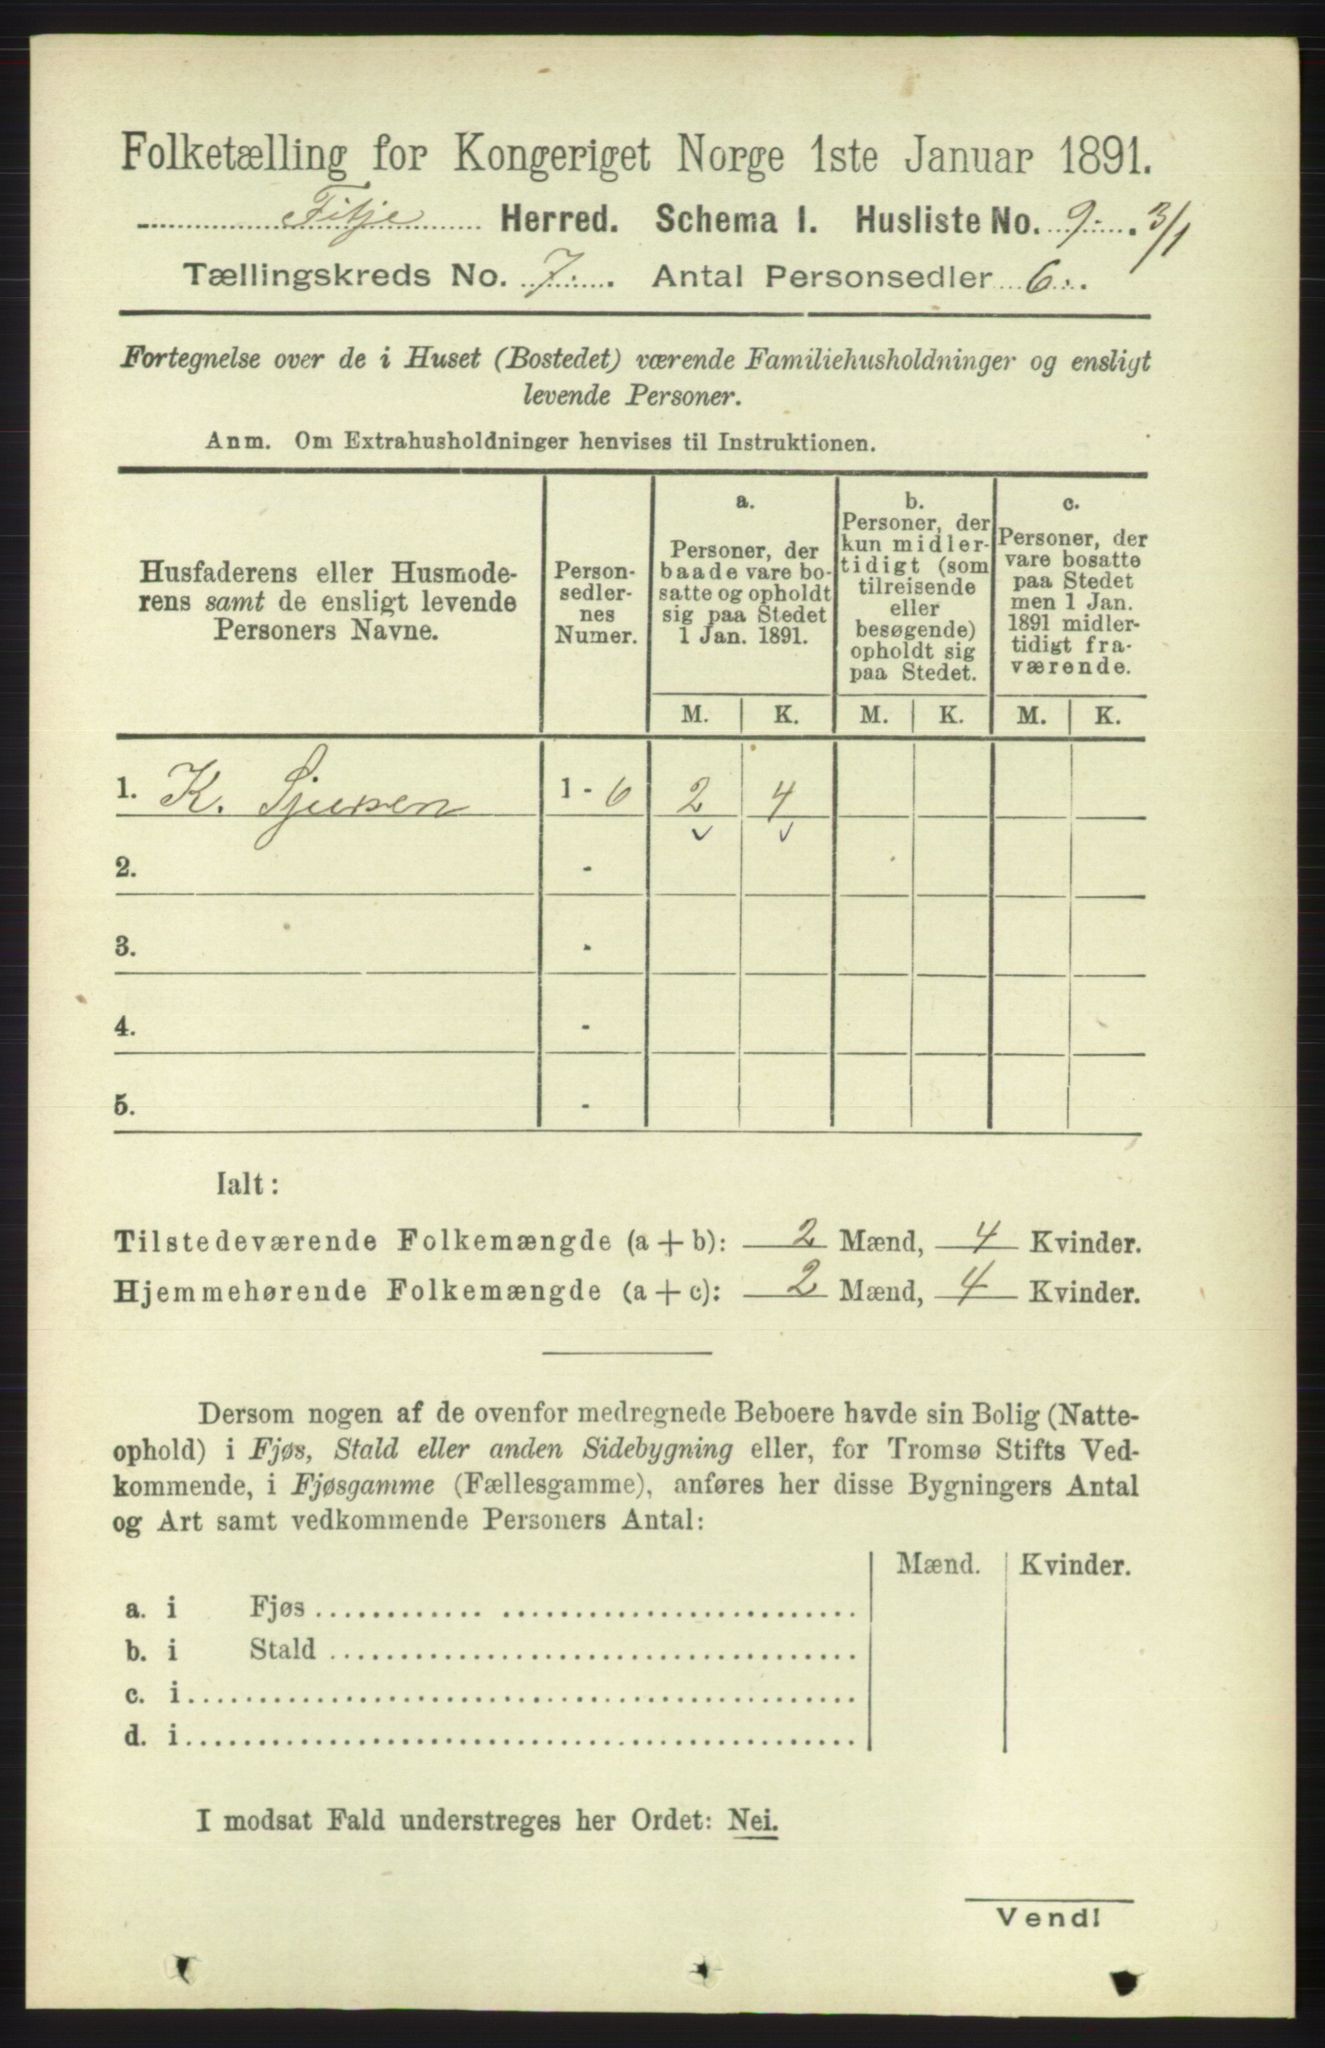 Folketælling for Kongeriget Norge 1ste Januar 1891.
Fitje Herred. Schema I. Husliste No. 9. 3/1
Tællingskreds No. 7. Antal Personsedler 6.
Fortegnelse over de i Huset (Bostedet) værende Familiehusholdninger og ensligt
levende Personer.
Anm. Om Extrahusholdninger henvises til Instruktionen.
Husfaderens eller Husmode-
rens samt de ensligt levende
Personers Navne.
Person-
sedler-
nes
Numer.
a.
Personer, der
baade vare bo-
satte og opholdt
sig paa Stedet
1 Jan. 1891.
b.
Personer, der
kun midler-
tidigt (som
tilreisende
eller
besøgende)
opholdt sig
paa Stedet.
c.
Personer, der
vare bosatte
paa Stedet
men 1 Jan.
1891 midler-
tidigt fra-
værende.
M. K. M. K. M. K.
1. K. Sjursen 1 - 6 2 4
2. -
3. -
4. -
5. -
Ialt:
Tilstedeværende Folkemængde (a + b): 2 Mænd, 4 Kvinder.
Hjemmehørende Folkemængde (a + c): 2 Mænd, 4 Kvinder.
Dersom nogen af de ovenfor medregnede Beboere havde sin Bolig (Natte-
ophold) i Fjøs, Stald eller anden Sidebygning eller, for Tromsø Stifts Ved-
kommende, i Fjøsgamme (Fællesgamme), anføres her disse Bygningers Antal
og Art samt vedkommende Personers Antal:
Mænd. Kvinder.
a. i Fjøs
b. i Stald
c. i
d. i
I modsat Fald understreges her Ordet: Nei.
Vend!